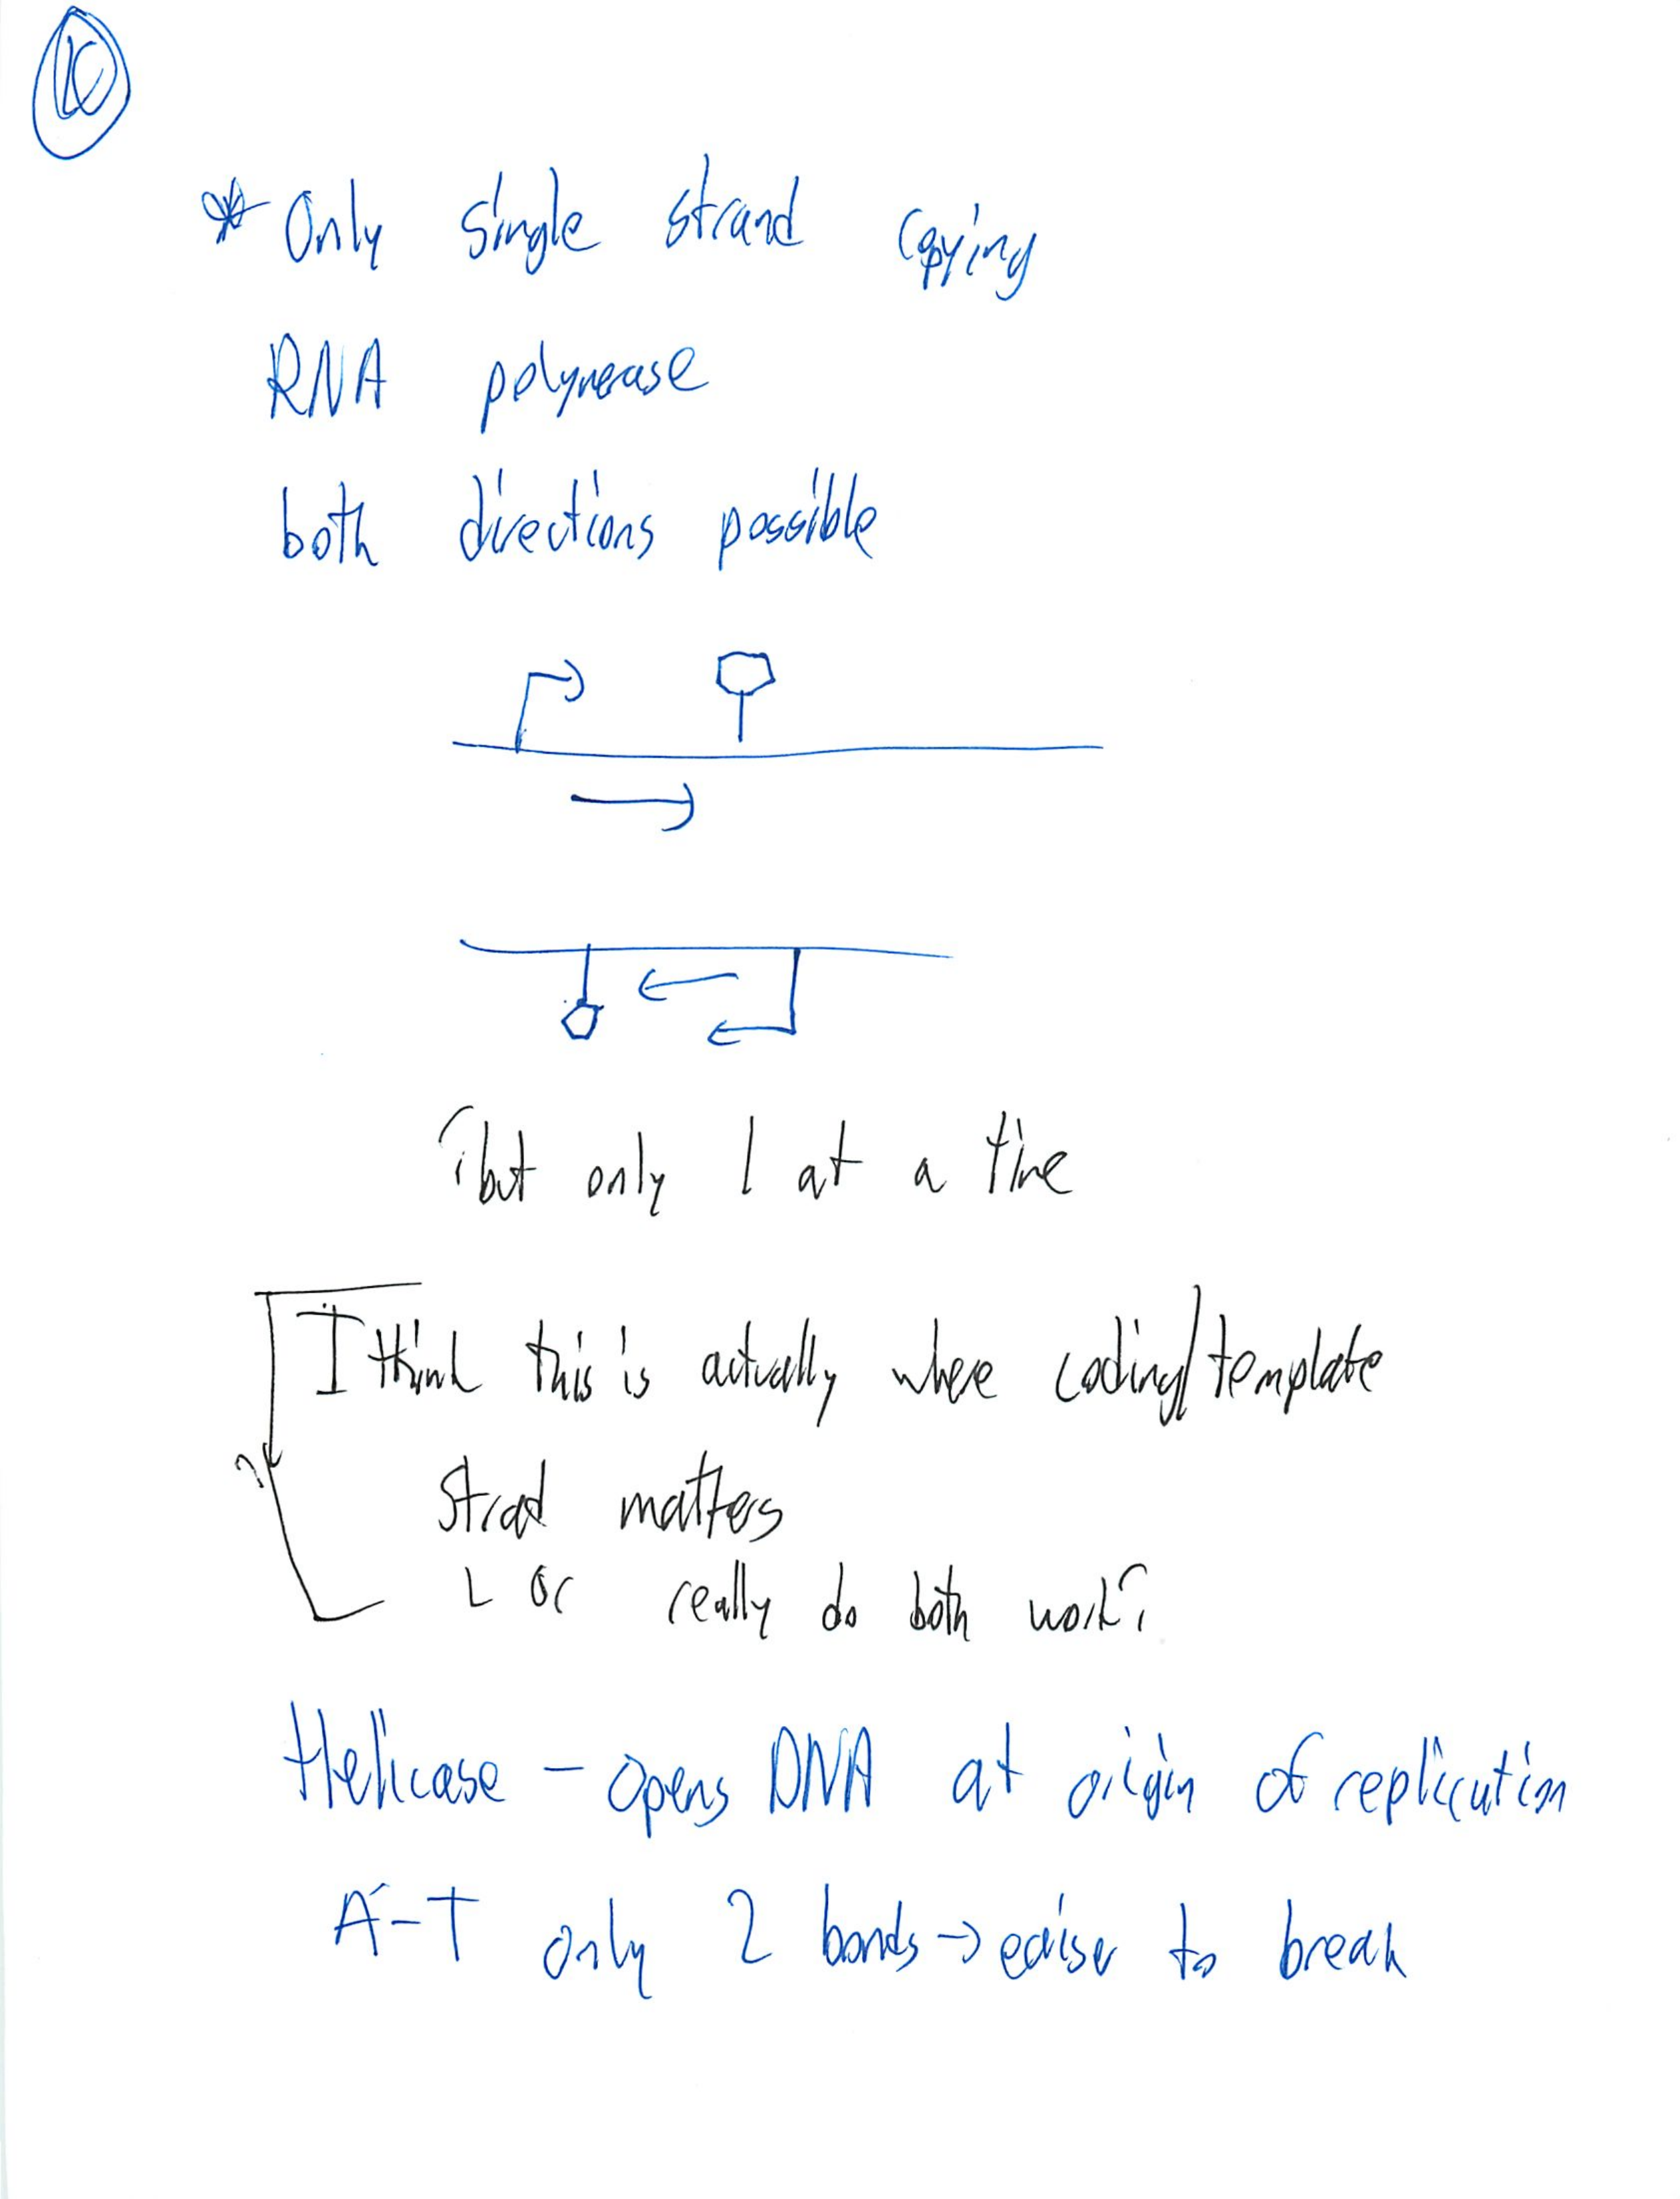 10
* Only single strand copying
RNA polymerase
both directions possible
but only 1 at a time
I think this is actually where coding/template
strand matters
or really do both work?
Helicase - opens DNA at origin of replication
A-T only 2 bonds → easier to break